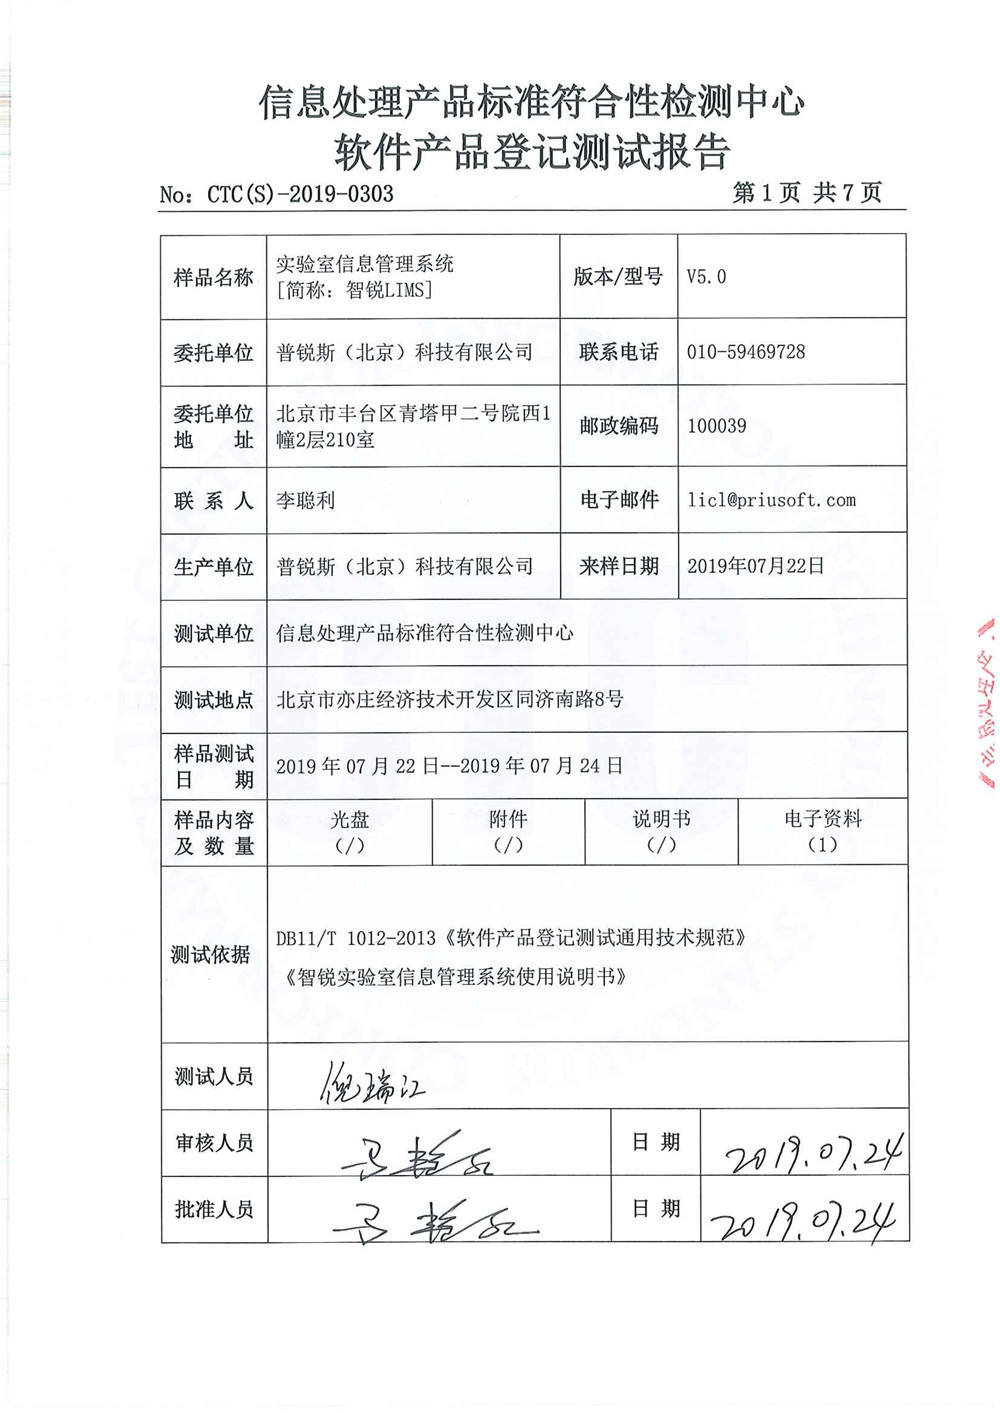 信息处理产品标准符合性检测中心
软件产品登记测试报告
No: CTC(S)-2019-0303 第1页 共7页
样品名称 实验室信息管理系统 版本/型号 V5.0
[简称：智锐LIMS]
委托单位 普锐斯（北京）科技有限公司 联系电话 010-59469728
委托单位 北京市丰台区青塔甲二号院西1 邮政编码 100039
地 址 幢2层210室
联系人 李聪利 电子邮件 licl@priusoft.com
生产单位 普锐斯（北京）科技有限公司 来样日期 2019年07月22日
测试单位 信息处理产品标准符合性检测中心
测试地点 北京市亦庄经济技术开发区同济南路8号
样品测试 2019 年 07 月 22 日--2019 年 07 月 24 日
日 期
样品内容 光盘 附件 说明书 电子资料
及数量 (/) (/) (/) (1)
测试依据 DB11/T 1012-2013《软件产品登记测试通用技术规范》
《智锐实验室信息管理系统使用说明书》
测试人员 倪瑞江
审核人员 日 期 2019.07.24
批准人员 日 期 2019.07.24